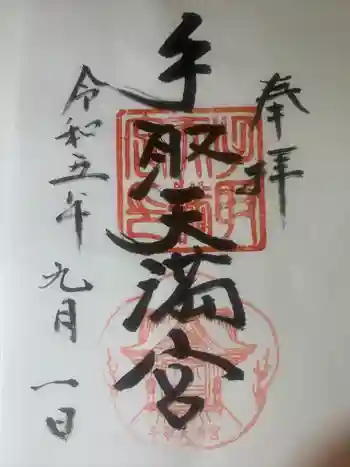 奉拝
手取天満宮
令和五年
九月
一日